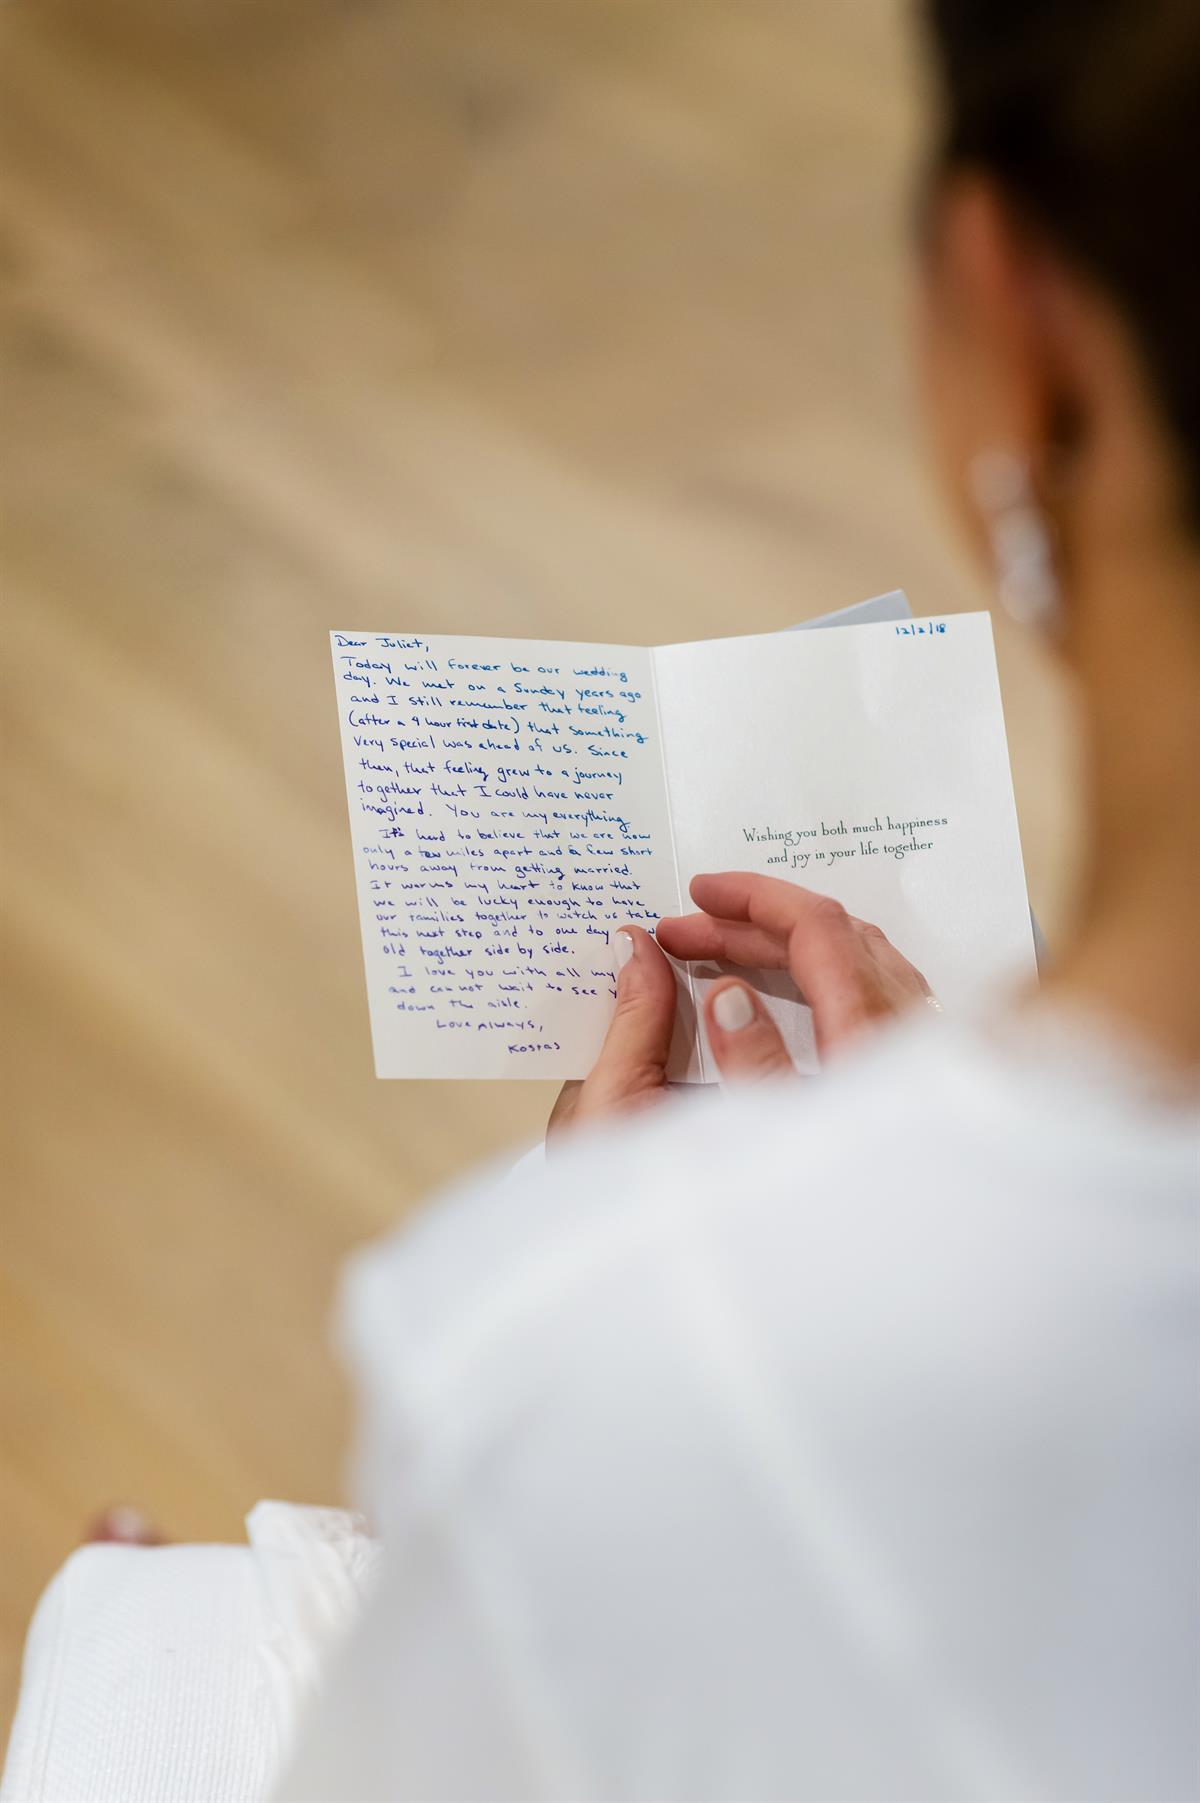 Dear Juliet,
Today will forever be our wedding
day. We met on a Sunday years ago
and I still remember that feeling
(after a 4 hour first date) that something
very special was ahead of us. Since
then, that feeling grew to a journey
together that I could have never
imagined. You are my everything
It's hard to believe that we are now
only a few miles apart and a few short
hours away from getting married.
It warms my heart to know that
we will be lucky enough to have
our families together to watch us take
this next step and to one day
old together side by side.
I love you with all my
and can not wait to see
down the aisle.
Love Always,
Kostas
12/2/18
Wishing you both much happiness
and joy in your life together